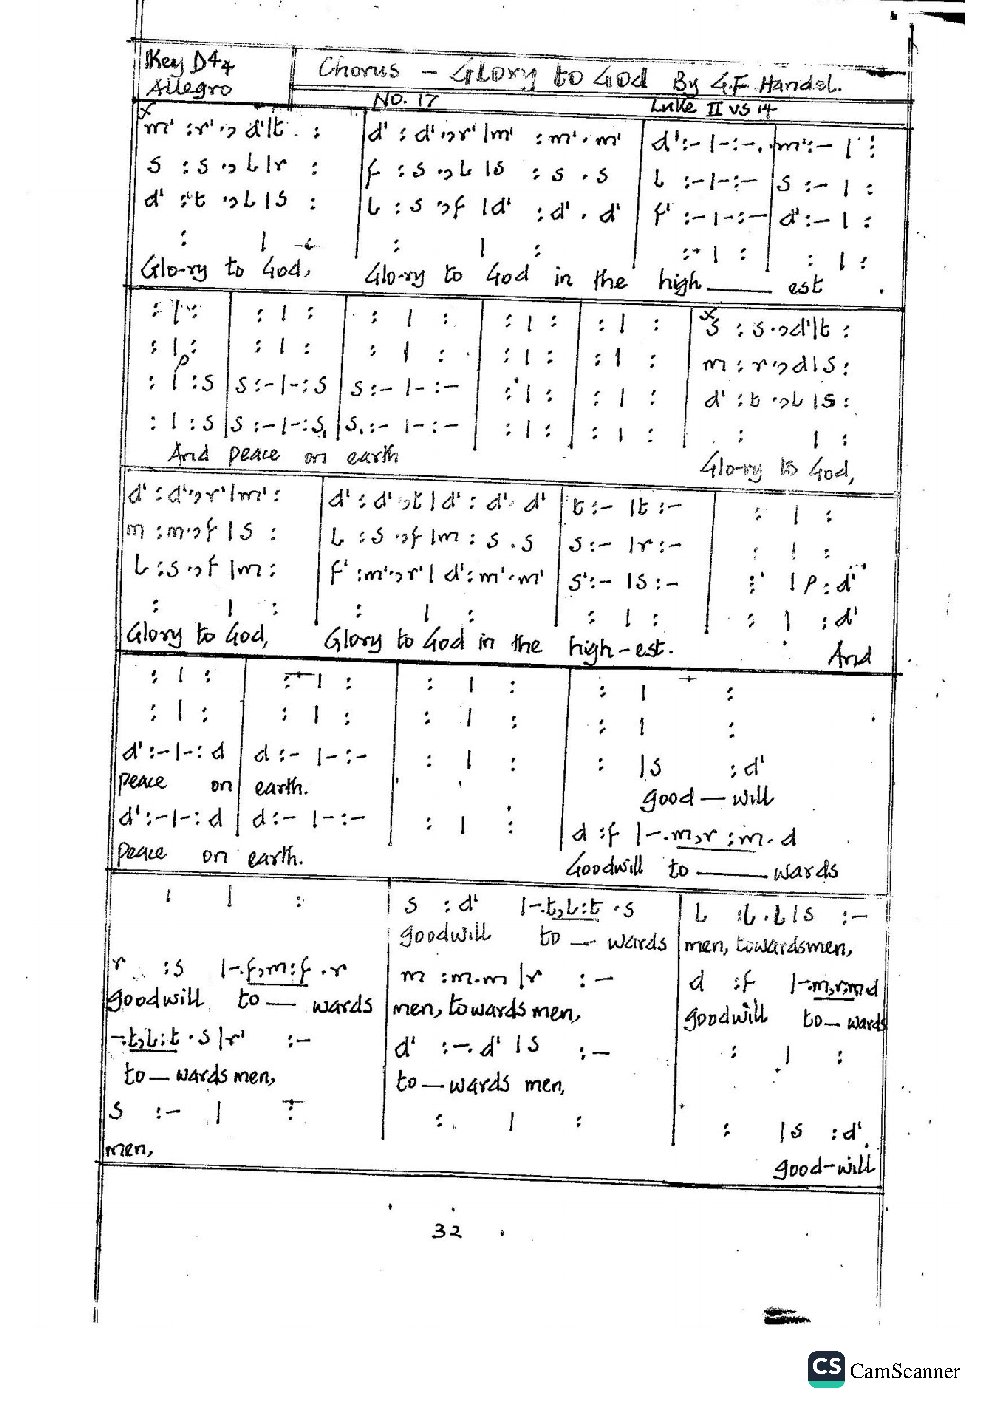 Key D 4/4
Allegro
Chorus – Glory to God By G.F. Handel.
No. 17 Luke II vs 14
m' : r' ., d' | t : | d' : d' ., r' | m' : m' . m' | d' : – | – : – | m' : – | :
s : s ., l | r : | f : s ., l | s : s . s | l : – | – : – | s : – | :
d' : t ., l | s : | l : s ., f | d' : d' . d' | f' : – | – : – | d' : – | :
: | : | : | : | : | : | : | :
Glo-ry to God, Glo-ry to God in the high —— est .
: | : | : | : | : | : | : | : | : | : | s : s ., d' | t :
: | : | : | : | : | : | : | : | : | : | m : r ., d | s :
p
: | : s | s : – | – : s | s : – | – : – | : | : | : | : | d' : t ., l | s :
: | : s | s : – | – : s, | s, : – | – : – | : | : | : | : | : | :
And peace on earth Glo-ry to God,
d' : d' ., r' | m' : | d' : d' ., t | d' : d' . d' | t : – | t : – | : | :
m : m ., f | s : | l : s ., f | m : s . s | s : – | r : – | : | :
l : s ., f | m : | f' : m' ., r' | d' : m' . m' | s' : – | s : – | : | p : d'
: | : | : | : | : | : | : | : d'
Glory to God, Glory to God in the high-est. And
: | : | : | : | : | : | : | :
: | : | : | : | : | : | : | :
d' : – | – : d | d : – | – : – | : | : | : | s : d'
peace on earth. good — will
d' : – | – : d | d : – | – : – | : | : | d : f | – . m, r : m . d
peace on earth. Goodwill to —— wards
: | : | s : d' | – . t, l : t . s | l : l . l | s : –
goodwill to — wards men, towardsmen,
r : s | – . f, m : f . r | m : m . m | r : – | d : f | – . m, r : m . d
goodwill to — wards men, towards men, goodwill to — wards
– . t, l : t . s | r' : – | d' : – . d' | s : – | : | :
to — wards men, to — wards men,
s : – | : | : | : | : | s : d'
men, good-will
32
CS CamScanner